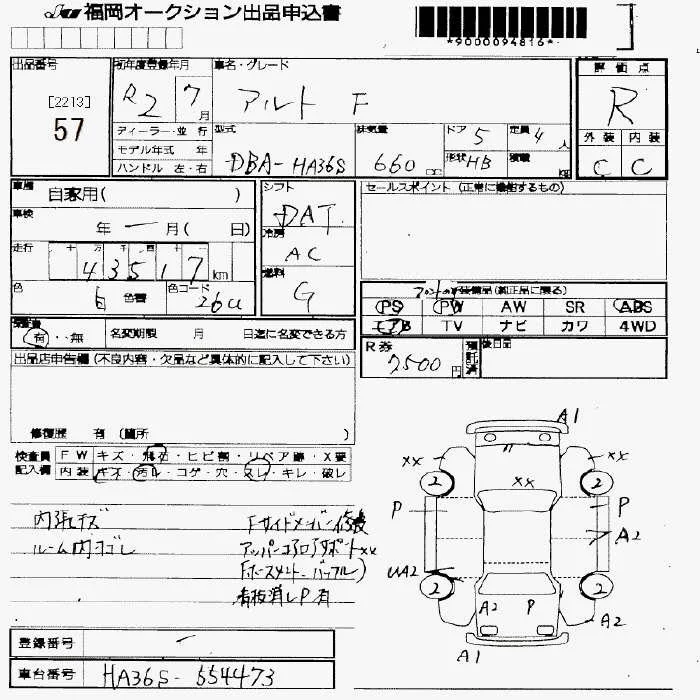 福岡オークション出品申込書
*9000094816*
出品番号
[2213]
57
初年度登録年月
R2 7月
ディーラー・並行
モデル年式 年
ハンドル 左・右
車名・グレード
アルト F
型式
DBA-HA36S
排気量
660 cc
ドア 5
定員 4 人
形状 HB
積載 kg
評価点
R
外装 内装
C C
車歴
自家用( )
車検
年 一 月( 日)
走行
十 万 千 百 十
4 3 5 1 7 km
色
白 色替
色コード
26U
シフト
DAT
冷房
AC
燃料
G
セールスポイント (正常に機能するもの)
装備品(純正品に限る)
PS PW AW SR ABS
エアB TV ナビ カワ 4WD
保証書
有・無
名変期限 月 日迄に名変できる方
R券
7500 円
預託済
後日品
出品店申告欄 (不良内容・欠品など具体的に記入して下さい)
修復歴 有 (箇所 )
検査員記入欄
FW キズ・飛石・ヒビ割・リペア跡・X要
内装 キズ・汚レ・コゲ・穴・スレ・キレ・破レ
内張キズ
ルーム内ヨゴレ
Fサイドメンバー修復
アッパーコアロアサポートxx
看板消しP有
A1
xx xx
xx
2 2
P P
A2
UA2
2 2
A2 P A2
A1
登録番号 ー
車台番号 HA36S-554473